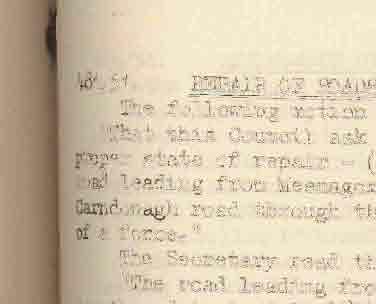 REPAIR OF ROADS
The following motion
"That this Council ask
proper state of repair - (
road leading from Meenagor
Carndonagh road through th
of a force."
The Secretary read th
"The road leading fro